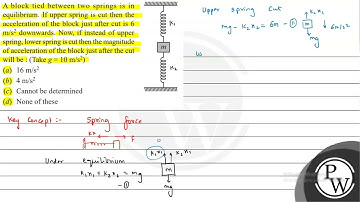 A block tied between two springs is in
equilibrium. If upper spring is cut then the
acceleration of the block just after cut is 6
m/s² downwards. Now, if instead of upper
spring, lower spring is cut then the magnitude
of acceleration of the block just after the cut
will be : (Take g = 10 m/s²)
(a) 16 m/s²
(b) 4 m/s²
(c) Cannot be determined
(d) None of these
K₁
m
K₂
Upper spring cut
mg - K₂x₂ = 6m - ①
K₂x₂
m
6m/s²
mg
Key Concept :- Spring force
Kx
F
Under equilibrium
K₁x₁ + K₂x₂ = mg
- ①
K₁x₁
K₂x₂
m
mg
P
W